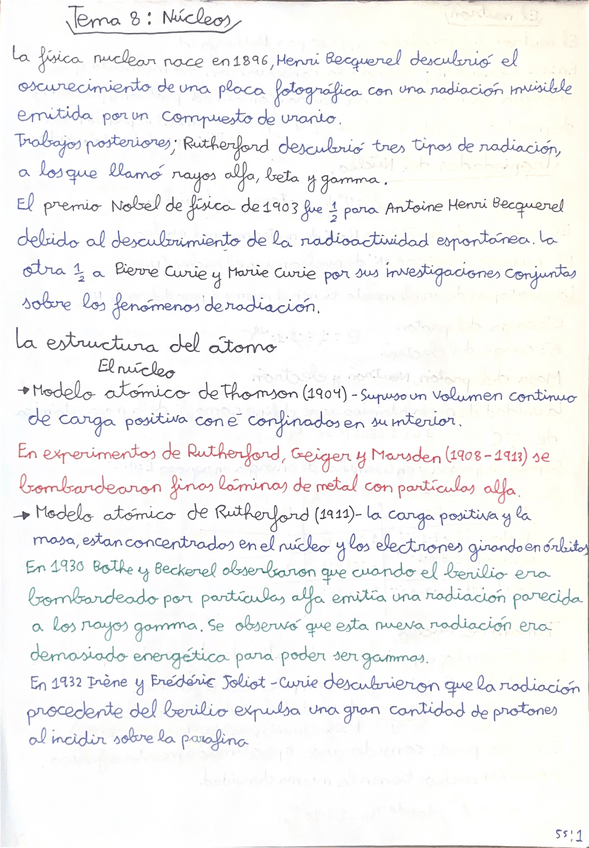 Tema 8: Núcleos
La física nuclear nace en 1896, Henri Becquerel descubrió el
oscurecimiento de una placa fotográfica con una radiación invisible
emitida por un compuesto de uranio.
Trabajos posteriores; Rutherford descubrió tres tipos de radiación,
a los que llamó rayos alfa, beta y gamma.
El premio Nobel de física de 1903 fue 1/2 para Antoine Henri Becquerel
debido al descubrimiento de la radioactividad espontánea. La
otra 1/2 a Pierre Curie y Marie Curie por sus investigaciones conjuntas
sobre los fenómenos de radiación.
La estructura del átomo
El núcleo
→ Modelo atómico de Thomson (1904) - Supuso un volumen continuo
de carga positiva con e⁻ confinados en su interior.
En experimentos de Rutherford, Geiger y Marsden (1908-1913) se
bombardearon finas láminas de metal con partículas alfa.
→ Modelo atómico de Rutherford (1911)- la carga positiva y la
masa, estan concentrados en el núcleo y los electrones girando en órbitas
En 1930 Bothe y Beckerel obserbaron que cuando el berilio era
bombardeado por partículas alfa emitía una radiación parecida
a los rayos gamma. Se observó que esta nueva radiación era
demasiado energética para poder ser gammas.
En 1932 Irène y Frédéric Joliot-Curie descubrieron que la radiación
procedente del berilio expulsa una gran cantidad de protones
al incidir sobre la parafina
55:1